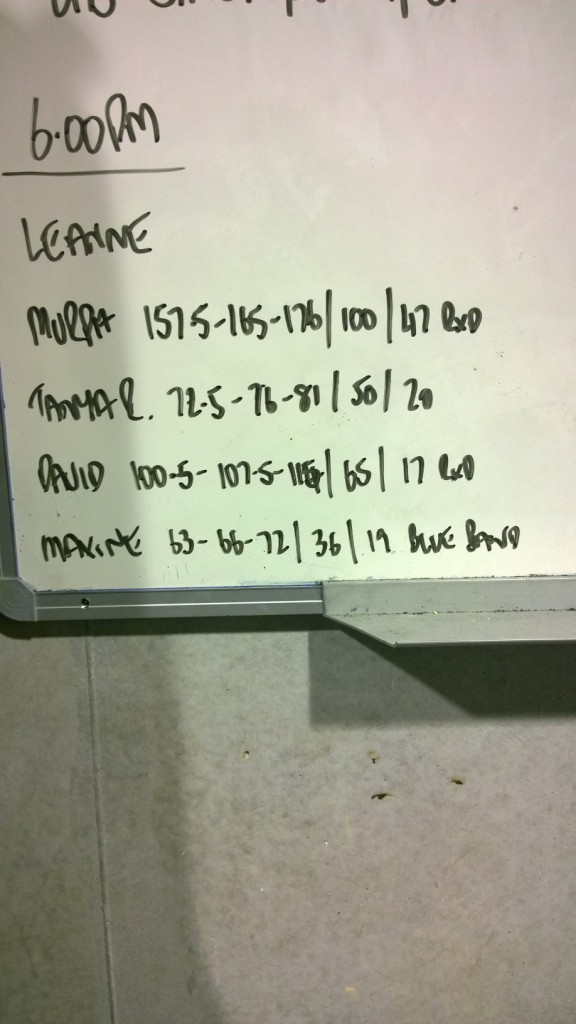 6.00PM
LEANNE
MURPH 157.5-165-176/100/47 RxD
TAMAR. 72.5-76-81/50/20
DAVID 100.5-107.5-115/65/17 RxD
MAXINE 63-66-72/36/19 BLUE BAND